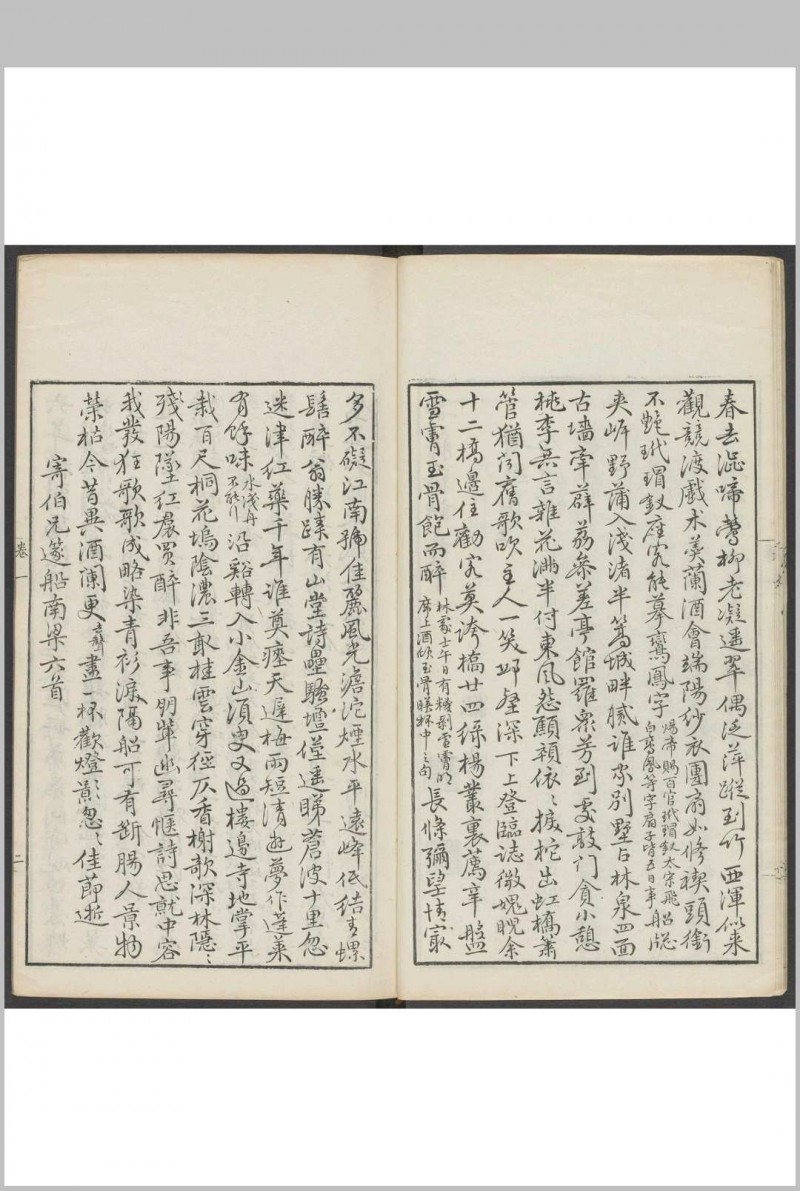 春去澁啼鶯柳老凝遥翠偶泛萍蹤到竹西渾似來
觀競渡戲木蘭酒會端陽紗衣團扇如修禊頭銜
不艶玳瑁釵座客能摹鸞鳳字 煬帝賜百官玳瑁釵太宗飛
白鸞鳳等字扇子皆五日事 船
夾岸野蒲入淺渚半篙城畔膩誰家別墅占林泉四面
古墻牽薜荔參差亭館羅衆芳到處敲門貪小憩
桃李無言雜花滿半付東風愁顦顇依〻捩柁出虹橋簫
管猶聞舊歌吹主人一笑深下上登臨誌微睨余
十二橋邊住勸客莫誇橋廿四綠楊叢裏薦辛盤
雪膏玉骨飽而醉 午日有雪膏
席上酒傾玉骨杯中之句 長條彌望情寂
多不礙江南號佳麗風光澹沱煙水平遠峰低結青螺
髻醉翁勝蹟有山堂詩壘騷壇僅遥睇蒼波十里忽
迷津紅藥千年誰奠瘞天遲梅雨短清遊夢作蓬萊
有餘味 水淺舟
不能行 沿谿轉入小金山須臾又過樓邊寺地掌平
栽百尺桐花塢陰濃三畝桂雲穿徑仄香榭歌深林隱〻
殘陽墜紅裙買醉非吾事朋輩幽尋愜詩思就中容
我發狂歌歌成略染青衫淚隔船可有斷腸人景物
榮枯今昔異酒闌更盡一杯歡燈影忽〻佳節逝
寄伯兄篆船南梁六首
卷一
二